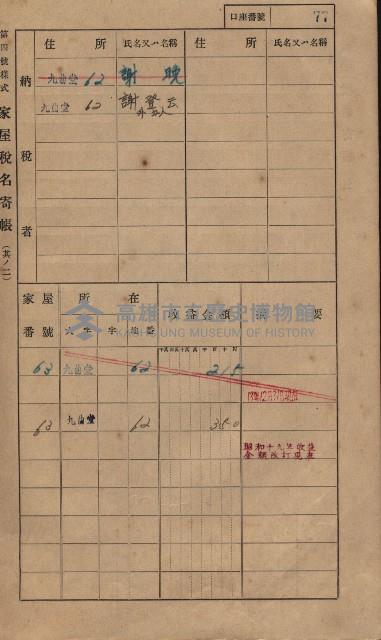 口座番號 77
第四號樣式 家屋稅名寄帳 (其ノ二)
納稅者
住所 氏名又ハ名稱 住所 氏名又ハ名稱
九曲堂 62 謝晚
九曲堂 62 謝登云
外五人
家屋番號 所在 收益金額 摘要
大字 字 地番
高雄市立歷史博物館
KAOHSIUNG MUSEUM OF HISTORY
63 九曲堂 62 215
63 九曲堂 62 350
昭和十九年收益
金額改訂